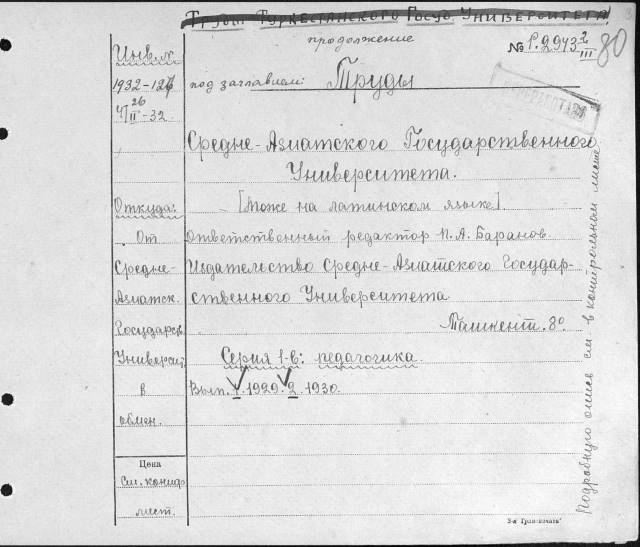 Труды Туркестанского Госуд Университета
продолжение
№ P.2943 2/III
80
Инв. №
1932-127
26/II-32
под заглавием: Труды
Средне-Азиатского Государственного
Университета.
Откуда:
[Тоже на латинском языке].
От
Ответственный редактор П. А. Баранов.
Средне-
Издательство Средне-Азиатского Государ-
Азиатск.
ственного Университета
Государств.
Ташкент. 8°
Университ
Серия 1-в: педагогика.
в
Вып. 1. 1929. 2. 1930.
обмен.
Цена
см. контр
лист.
Подробную опись см. в контрольном листе
3-я Гран-печать